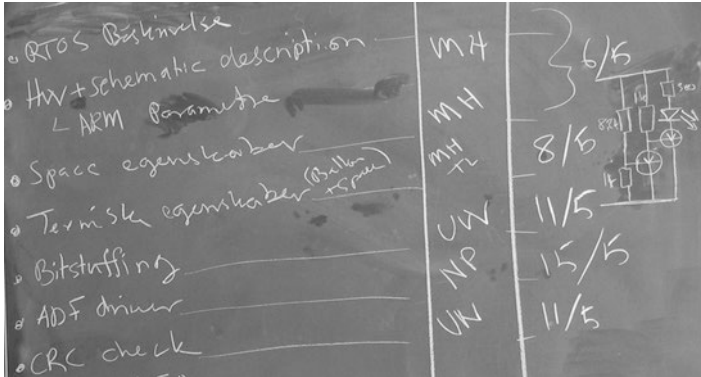 RTOS Beskrivelse
HW + Schematic description MH 6/5
ARM Parametre MH
Space egenskaber MH 8/5
Termiske egenskaber (Ballon + Space) UW 11/5
Bitstuffing NP 15/5
ADF driver UW 11/5
CRC check